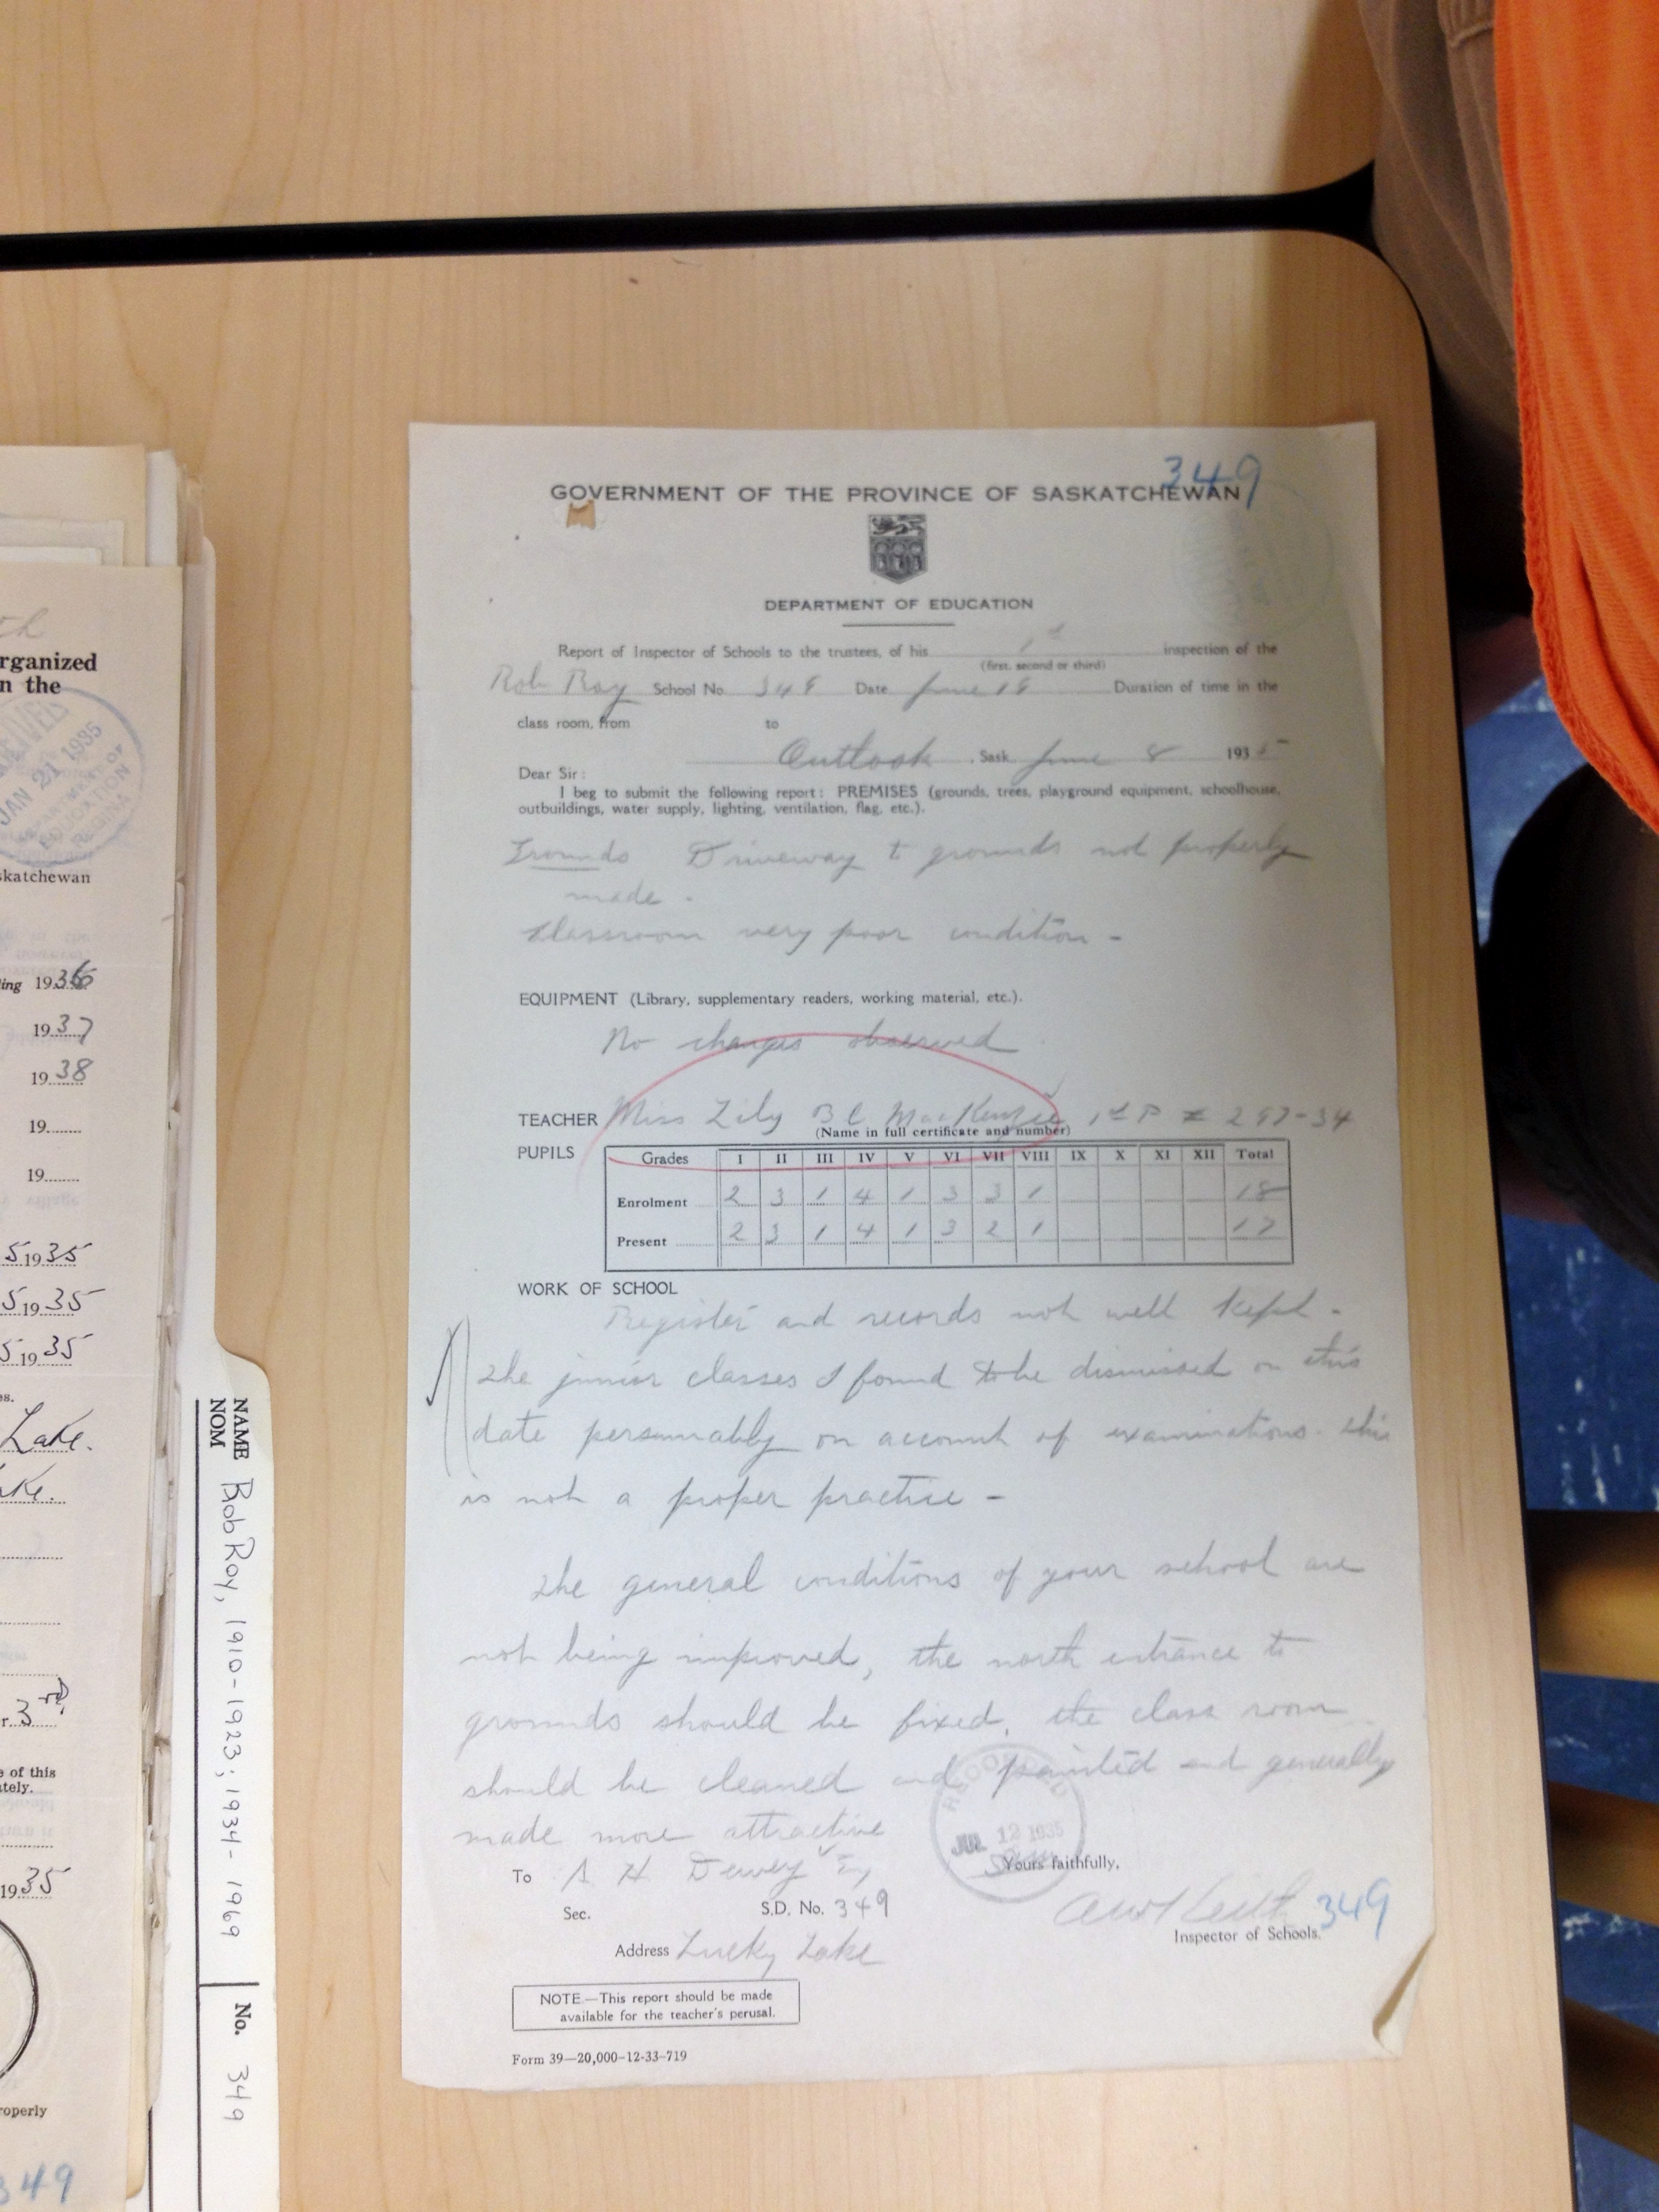 349
GOVERNMENT OF THE PROVINCE OF SASKATCHEWAN
DEPARTMENT OF EDUCATION
Report of Inspector of Schools to the trustees, of his 1st inspection of the
(first, second or third)
Rob Roy School No. 349 Date June 18 Duration of time in the
class room, from to
Outlook, Sask June 8 1935
Dear Sir:
I beg to submit the following report: PREMISES (grounds, trees, playground equipment, schoolhouse,
outbuildings, water supply, lighting, ventilation, flag, etc.).
Grounds Driveway to grounds not properly
made.
Classroom very poor condition -
EQUIPMENT (Library, supplementary readers, working material, etc.).
No changes observed
TEACHER Miss Lily B C MacKenzie 1st P # 297-34
(Name in full certificate and number)
PUPILS
Grades I II III IV V VI VII VIII IX X XI XII Total
Enrolment 2 3 1 4 1 3 3 1 18
Present 2 3 1 4 1 3 2 1 17
WORK OF SCHOOL
Register and records not well kept -
The junior classes I found to be dismissed on this
date persumably on account of examinations. This
is not a proper practice -
The general conditions of your school are
not being improved, the north entrance to
grounds should be fixed, the class room
should be cleaned and painted and generally
made more attractive
JUL 12 1935
To A H Dewey Esq
Yours faithfully,
Sec. S.D. No. 349
349
Inspector of Schools.
Address Lucky Lake
NOTE—This report should be made
available for the teacher's perusal.
Form 39—20,000-12-33-719
rganized
n the
JAN 21 1935
EDUCATION
REGINA
skatchewan
ing 1936
1937
1938
19
19
5 1935
5 1935
5 1935
es.
Lake.
ake.
r 3rd
e of this
ately.
1935
roperly
349
NAME
NOM
Rob Roy, 1910-1923; 1934-1969
No. 349